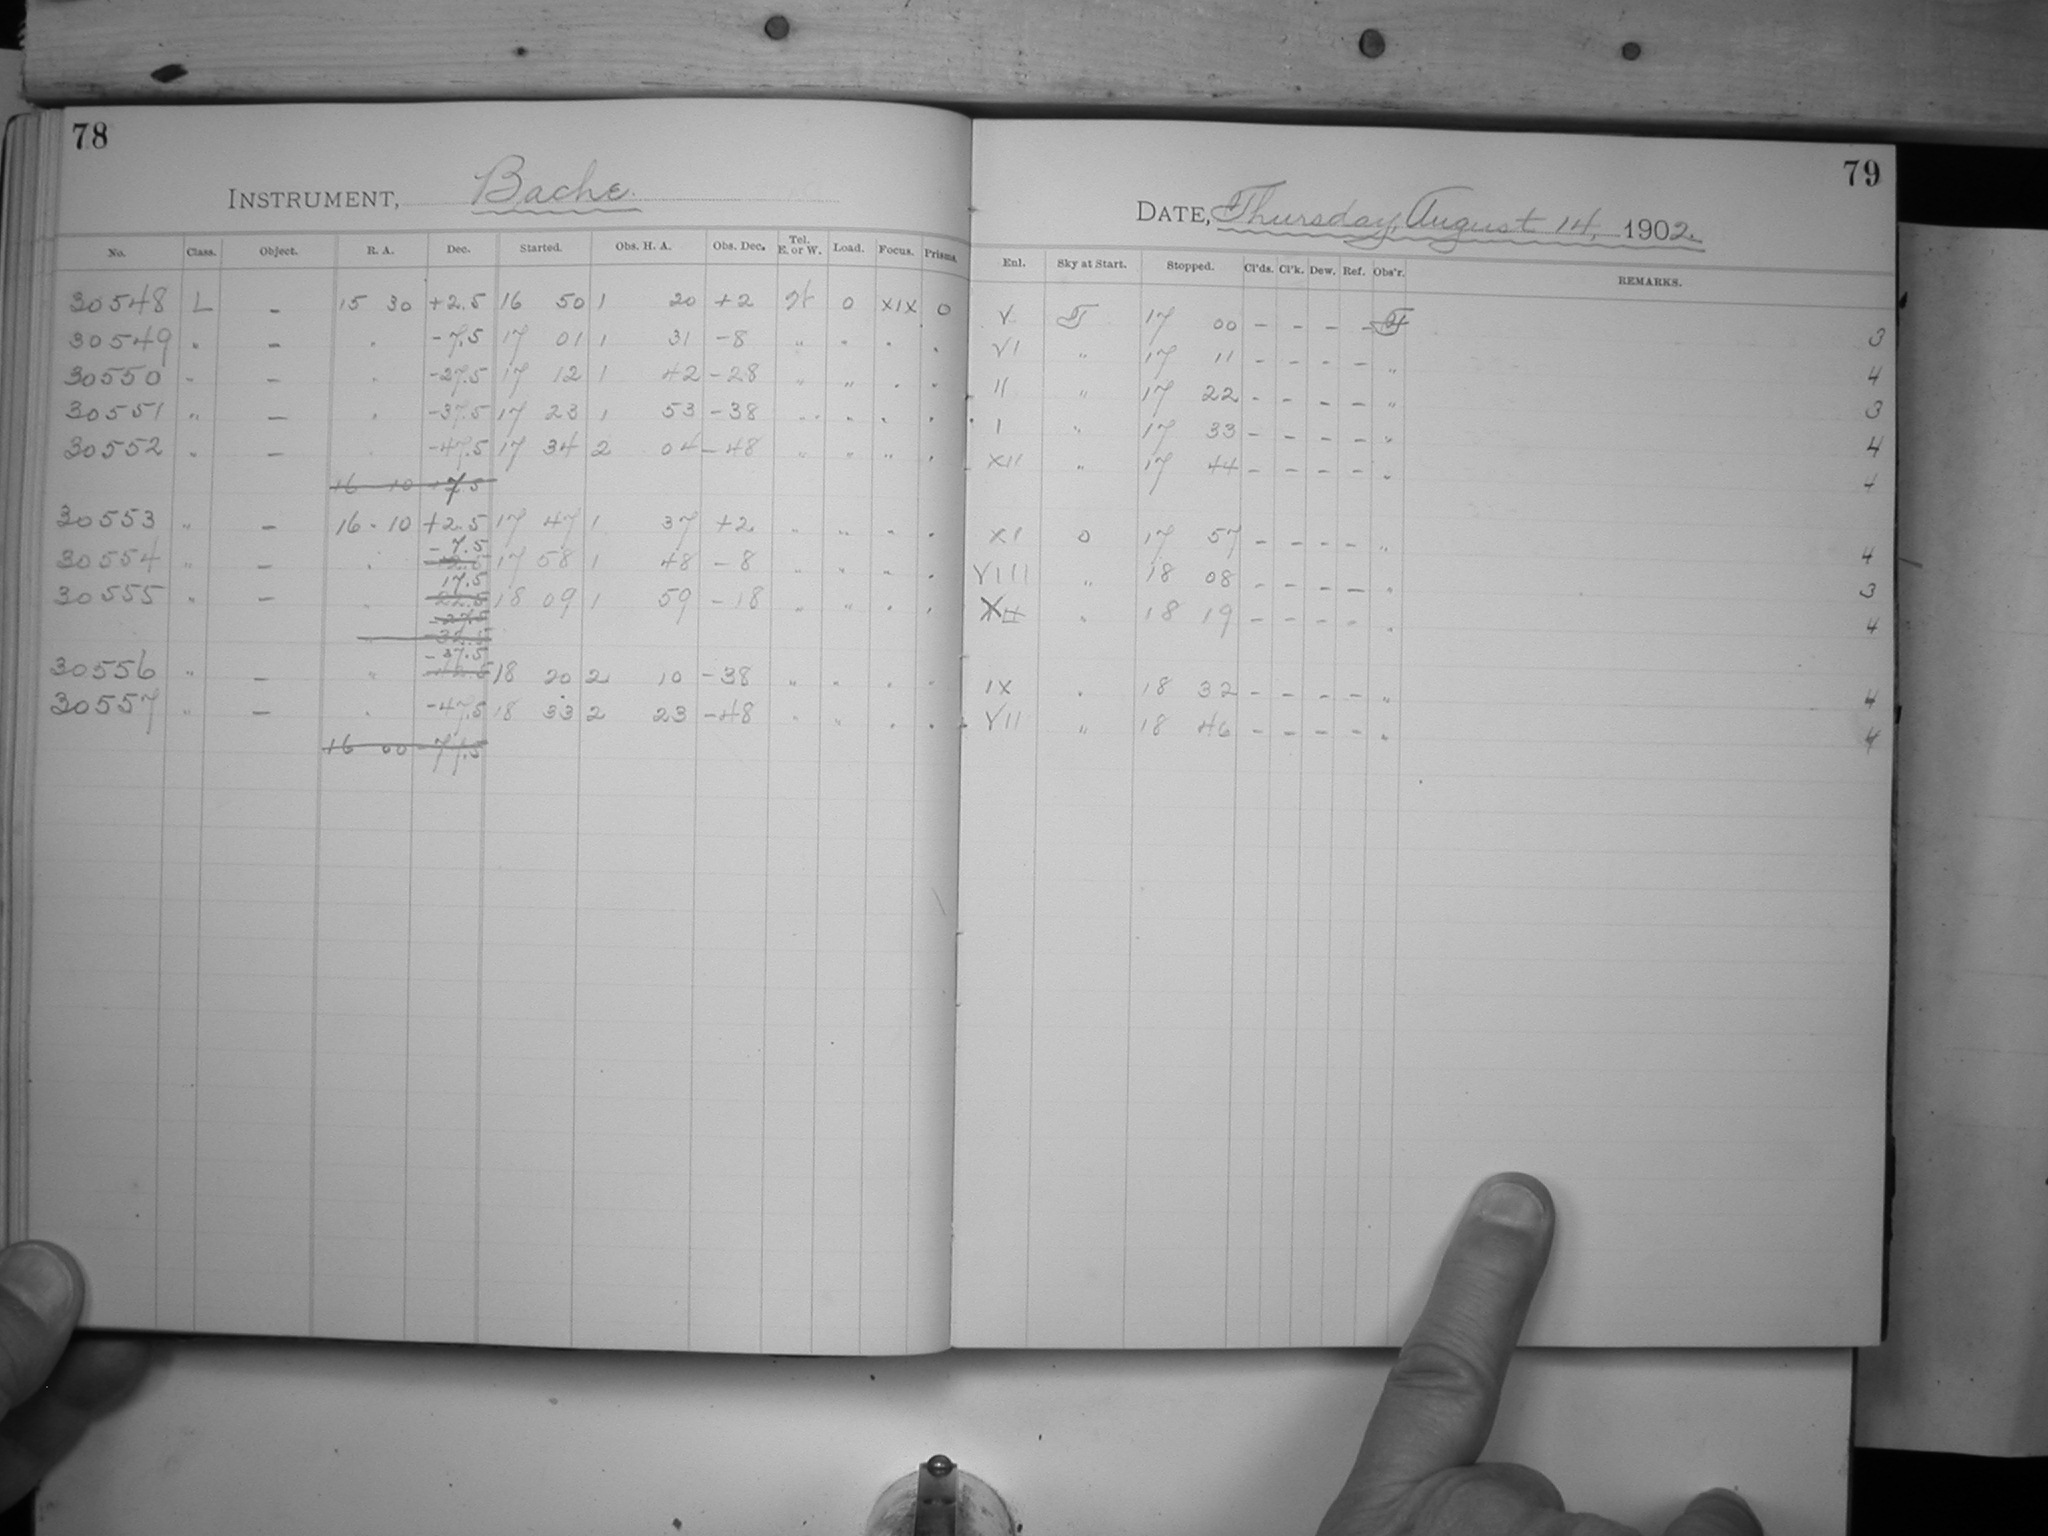 78
INSTRUMENT, Bache.
No. Class. Object. R. A. Dec. Started. Obs. H. A. Obs. Dec. Tel. E. or W. Load. Focus. Prisms.
30548 L – 15 30 +2.5 16 50 1 20 +2 0 XIX 0
30549 " – " -7.5 17 01 1 31 -8 " " " "
30550 " – " -27.5 17 12 1 42 -28 " " " "
30551 " – " -37.5 17 23 1 53 -38 " " " "
30552 " – " -47.5 17 34 2 04 -48 " " " "
16 10 +7.5
30553 " – 16 10 +2.5 17 47 1 37 +2 " " " "
30554 " – " -7.5 17 58 1 48 -8 " " " "
30555 " – " 17.5 18 09 1 59 -18 " " " "
" -32.5
30556 " – " -37.5 18 20 2 10 -38 " " " "
30557 " – " -47.5 18 33 2 23 -48 " " " "
16 00 -77.5
79
DATE, Thursday, August 14, 1902.
Enl. Sky at Start. Stopped. Cl'ds. Cl'k. Dew. Ref. Obs'r. REMARKS.
V 17 00 – – – – 3
VI " 17 11 – – – – " 4
II " 17 22 – – – – " 3
I " 17 33 – – – – " 4
XII " 17 44 – – – – " 4
XI 0 17 57 – – – – " 4
VIII " 18 08 – – – – " 3
" 18 19 – – – – " 4
IX " 18 32 – – – – " 4
VII " 18 46 – – – – " 4